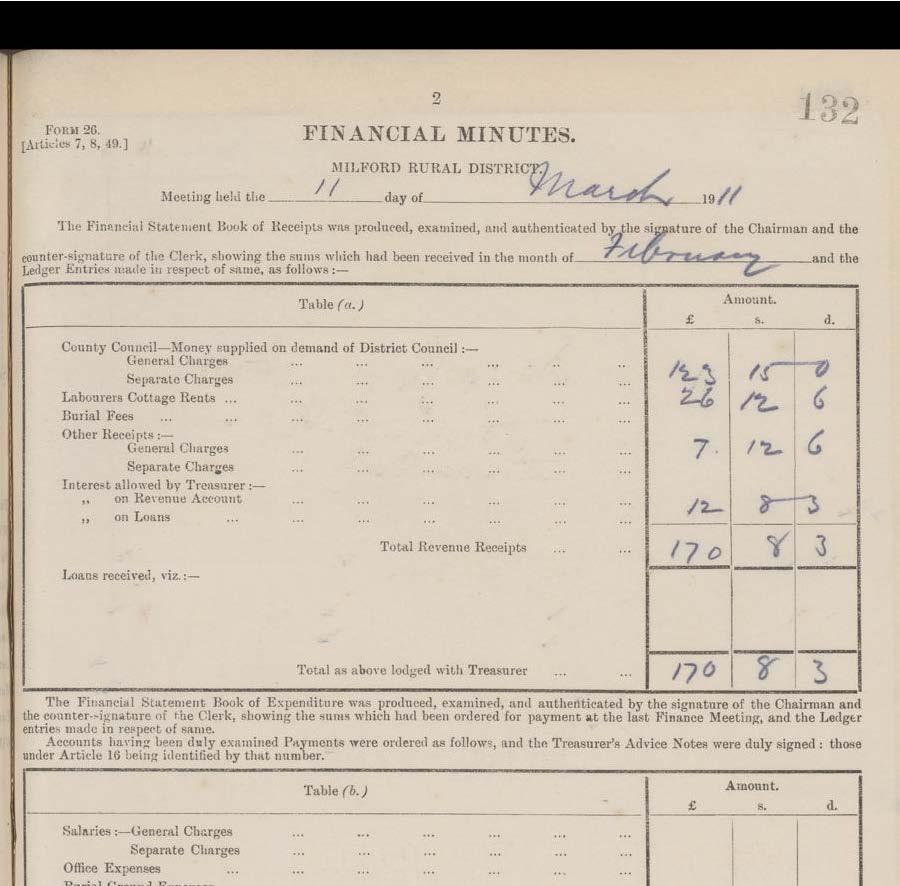 2
132
FORM 26.
[Articles 7, 8, 49.]
FINANCIAL MINUTES.
MILFORD RURAL DISTRICT.
Meeting held the 11 day of March 1911
The Financial Statement Book of Receipts was produced, examined, and authenticated by the signature of the Chairman and the
counter-signature of the Clerk, showing the sums which had been received in the month of February and the
Ledger Entries made in respect of same, as follows :—
Table (a.) Amount.
£ s. d.
County Council—Money supplied on demand of District Council :—
General Charges ... ... ... ... .. ..
Separate Charges ... ... ... ... ... ... 123 15 0
Labourers Cottage Rents ... ... ... ... ... ... ... 26 12 6
Burial Fees ... ... ... ... ... ... ... ...
Other Receipts :—
General Charges ... ... ... ... ... ... 7. 12 6
Separate Charges ... ... ... ... ... ...
Interest allowed by Treasurer :—
„ on Revenue Account ... ... ... ... ... ... 12 8 3
„ on Loans ... ... ... ... ... ... ...
Total Revenue Receipts ... ... 170 8 3
Loans received, viz. :—
Total as above lodged with Treasurer ... ... 170 8 3
The Financial Statement Book of Expenditure was produced, examined, and authenticated by the signature of the Chairman and
the counter-signature of the Clerk, showing the sums which had been ordered for payment at the last Finance Meeting, and the Ledger
entries made in respect of same.
Accounts having been duly examined Payments were ordered as follows, and the Treasurer's Advice Notes were duly signed : those
under Article 16 being identified by that number.
Table (b.) Amount.
£ s. d.
Salaries :—General Charges ... ... ... ... ... ...
Separate Charges ... ... ... ... ... ...
Office Expenses ... ... ... ... ... ... ...
Burial Ground Expenses